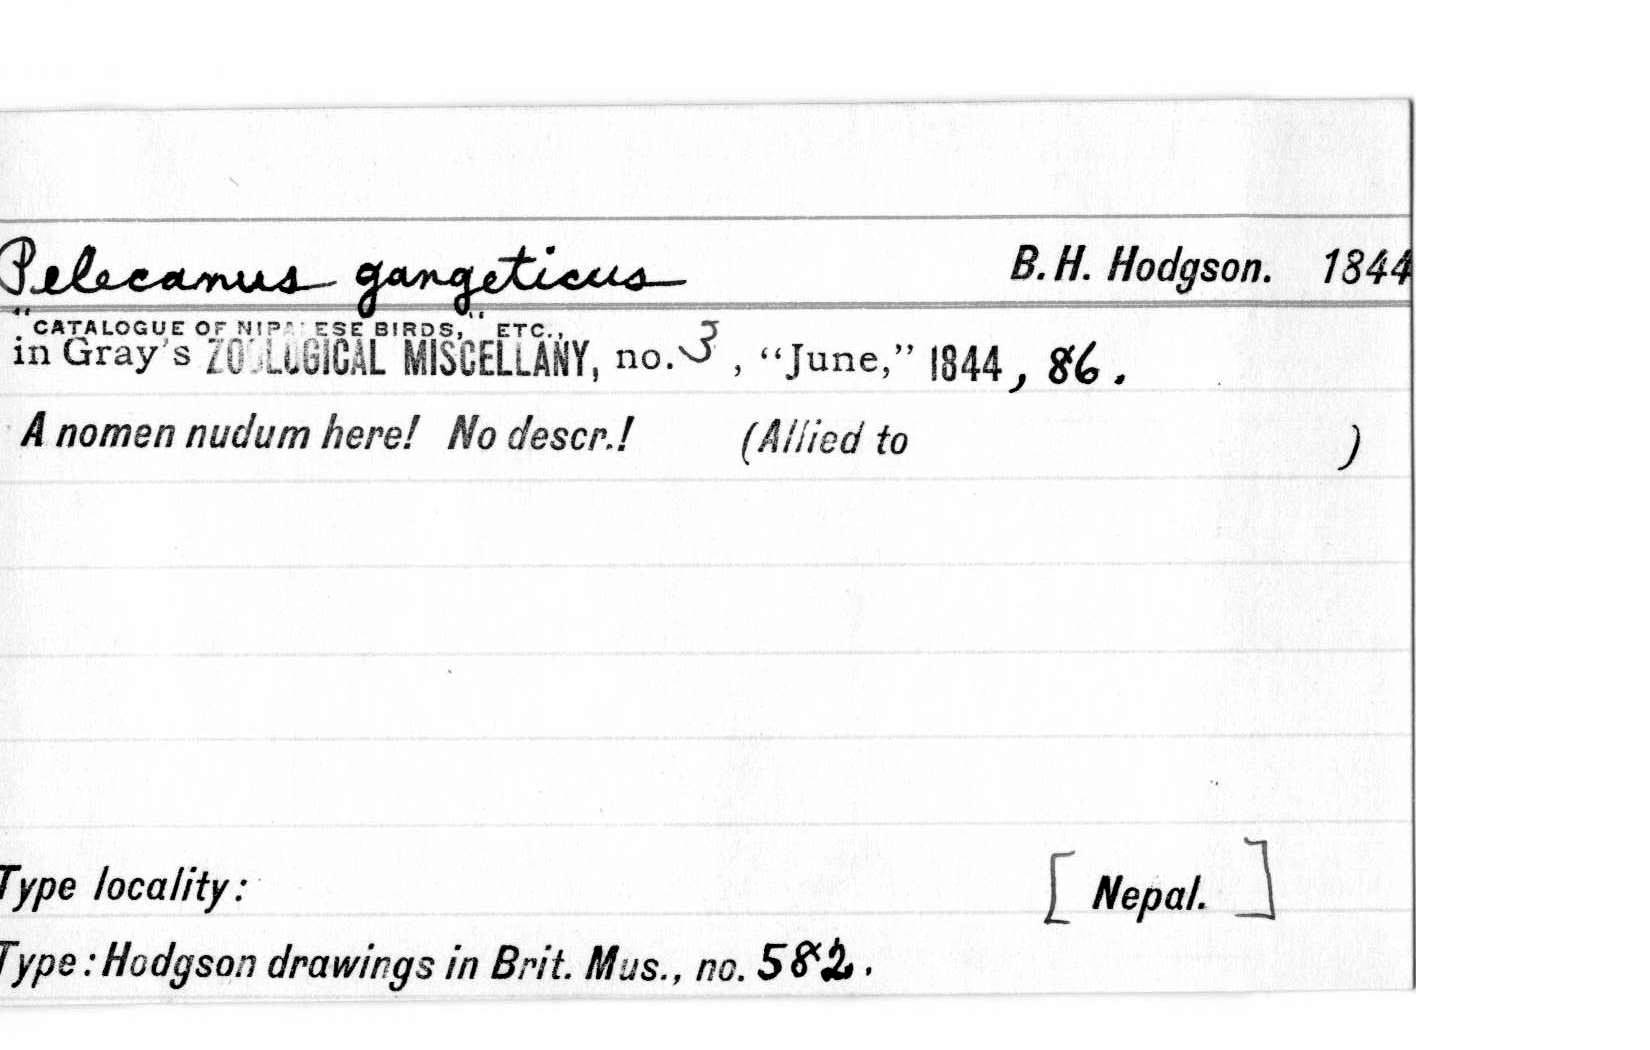 Pelecanus gangeticus B. H. Hodgson. 1844
"CATALOGUE OF NIPALESE BIRDS," ETC.,
in Gray's ZOOLOGICAL MISCELLANY, no. 3, "June," 1844, 86.
A nomen nudum here! No descr.! (Allied to )
Type locality: [ Nepal. ]
Type: Hodgson drawings in Brit. Mus., no. 582.